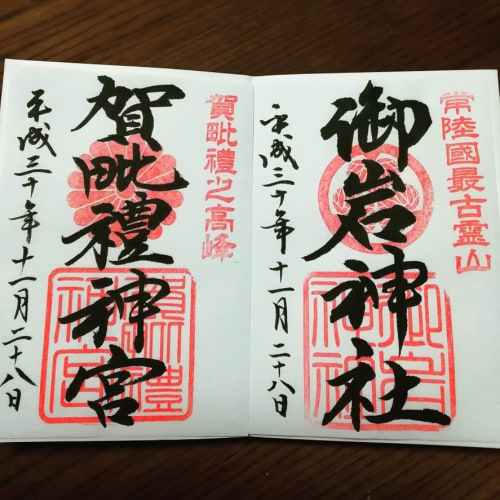 常陸國最古霊山
御岩神社
平成三十年十一月二十八日
賀毗禮之高峰
賀毗禮神宮
平成三十年十一月二十八日